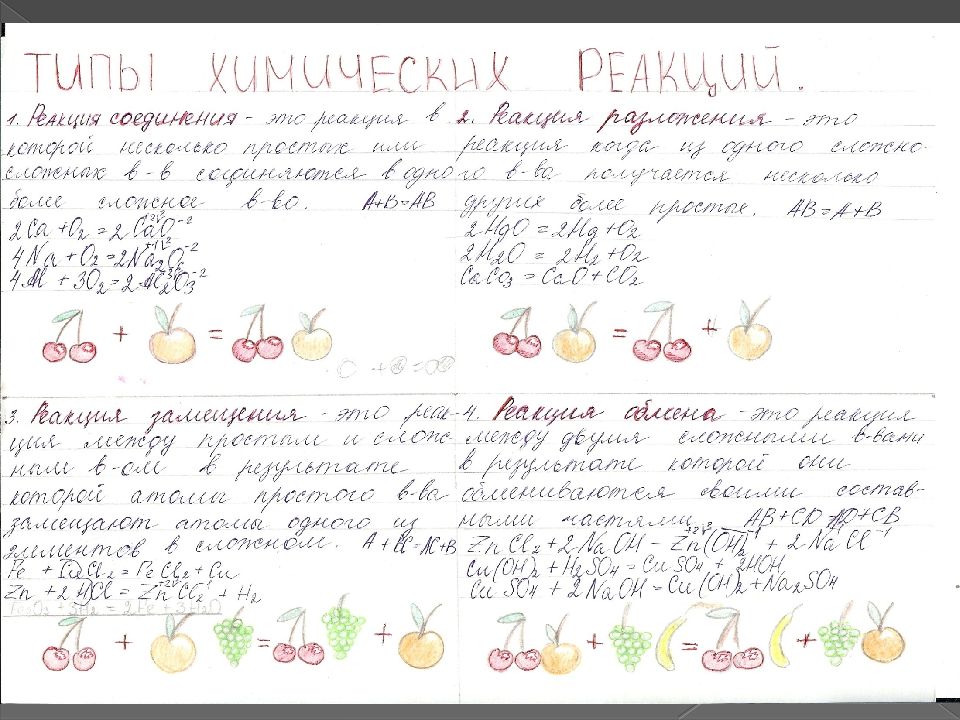 ТИПЫ ХИМИЧЕСКИХ РЕАКЦИЙ.
1. Реакция соединения - это реакция в
которой несколько простых или
сложных в-в соединяются в одно
более сложное в-во. A+B=AB
2Ca + O2 = 2CaO
4Na + O2 = 2Na2O
4Al + 3O2 = 2Al2O3
+ =
2. Реакция разложения - это
реакция когда из одного сложно-
го в-ва получается несколько
других более простых. AB = A + B
2HgO = 2Hg + O2
2H2O = 2H2 + O2
CaCo3 = CaO + CO2
= +
3. Реакция замещения - это реак-
ция между простым и слож-
ным в-ом в результате
которой атомы простого в-ва
замещают атомы одного из
элементов в сложном.
Fe + CuCl2 = FeCl2 + Cu
Zn + 2HCl = ZnCl2 + H2
Fe2O3 + 3H2 = 2Fe + 3H2O
+ = +
4. Реакция обмена - это реакция
между двумя сложными в-вами
в результате которой они
обмениваются своими состав-
ными частями. AB + CD = AD + CB
ZnCl2 + 2NaOH = Zn(OH)2 + 2NaCl
Cu(OH)2 + H2SO4 = CuSO4 + 2HOH
CuSO4 + 2NaOH = Cu(OH)2 + Na2SO4
+ = +